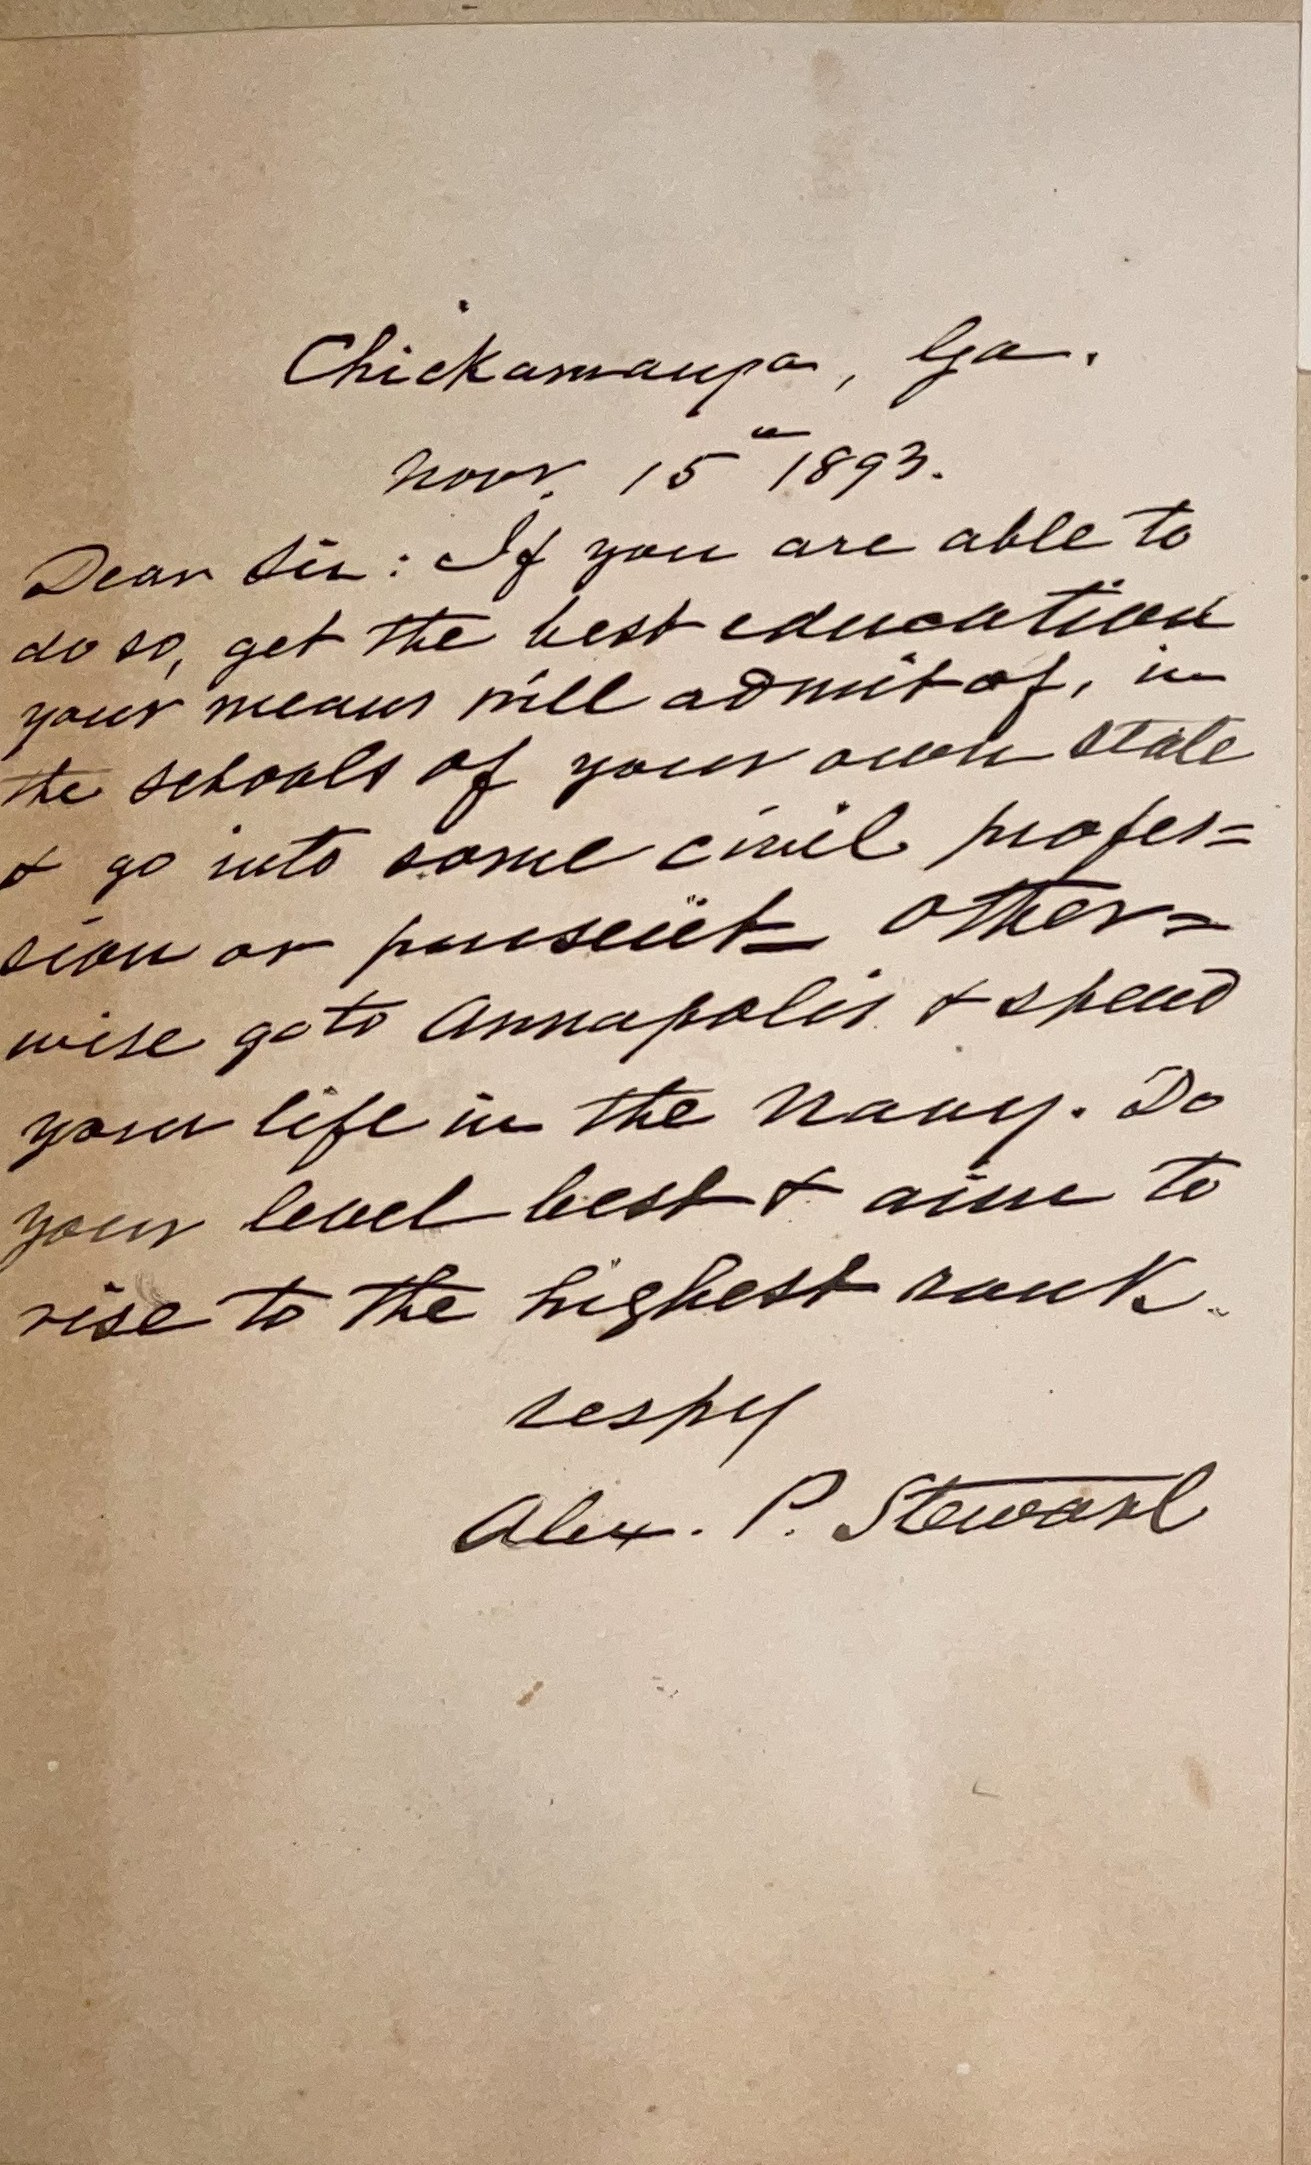 Chickamauga, Ga.
Nov. 15th 1893.
Dear Sir: If you are able to
do so, get the best education
your means will admit of, in
the schools of your own state
& go into some civil profes=
sion or pursuit_ Other=
wise go to Annapolis & spend
your life in the Navy. Do
your level best & aim to
rise to the highest rank.
respy
Alex. P. Stewart